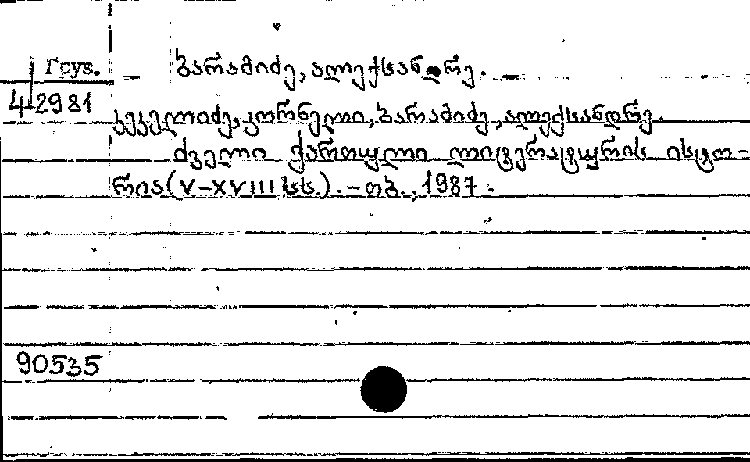 Груз.
ბარამიძე, ალექსანდრე.
4/2981
კეკელიძე, კორნელი, ბარამიძე, ალექსანდრე.
ძველი ქართული ლიტერატურის ისტო-
რია (V-XVIII სს.). - თბ., 1987.
90535